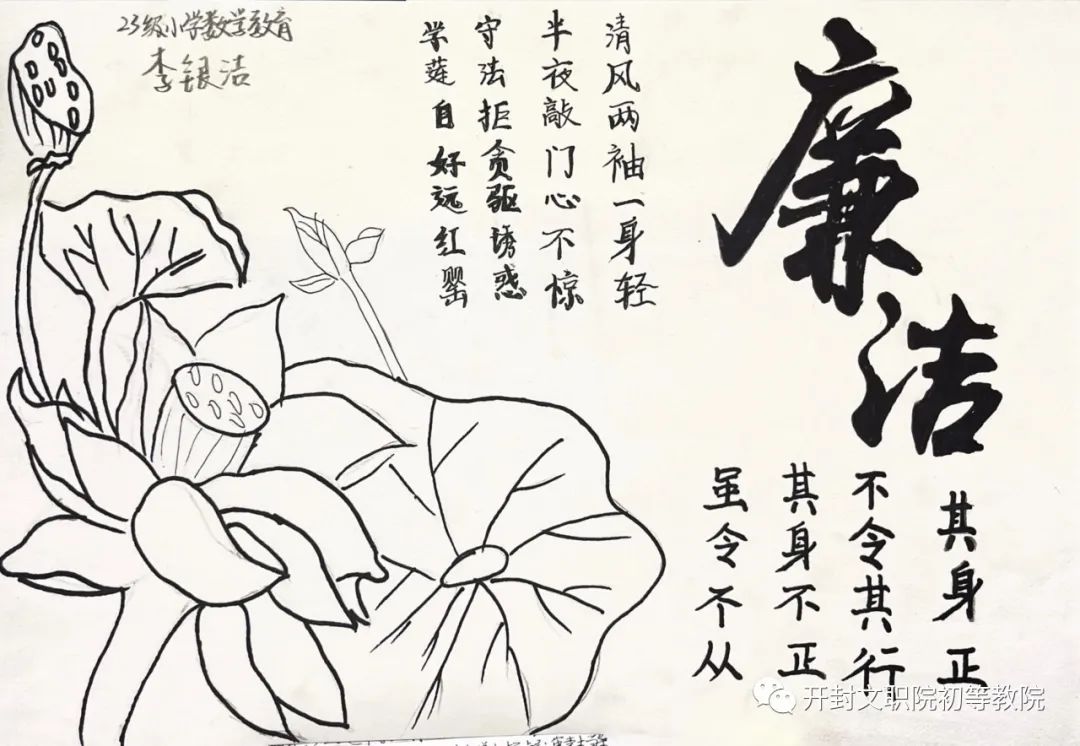 廉洁
其身正
不令其行
其身不正
虽令不从
清风两袖一身轻
半夜敲门心不惊
守法拒贪驱诱惑
学莲自好远红罂
23级小学数学教育
李银洁
开封文职院初等教院